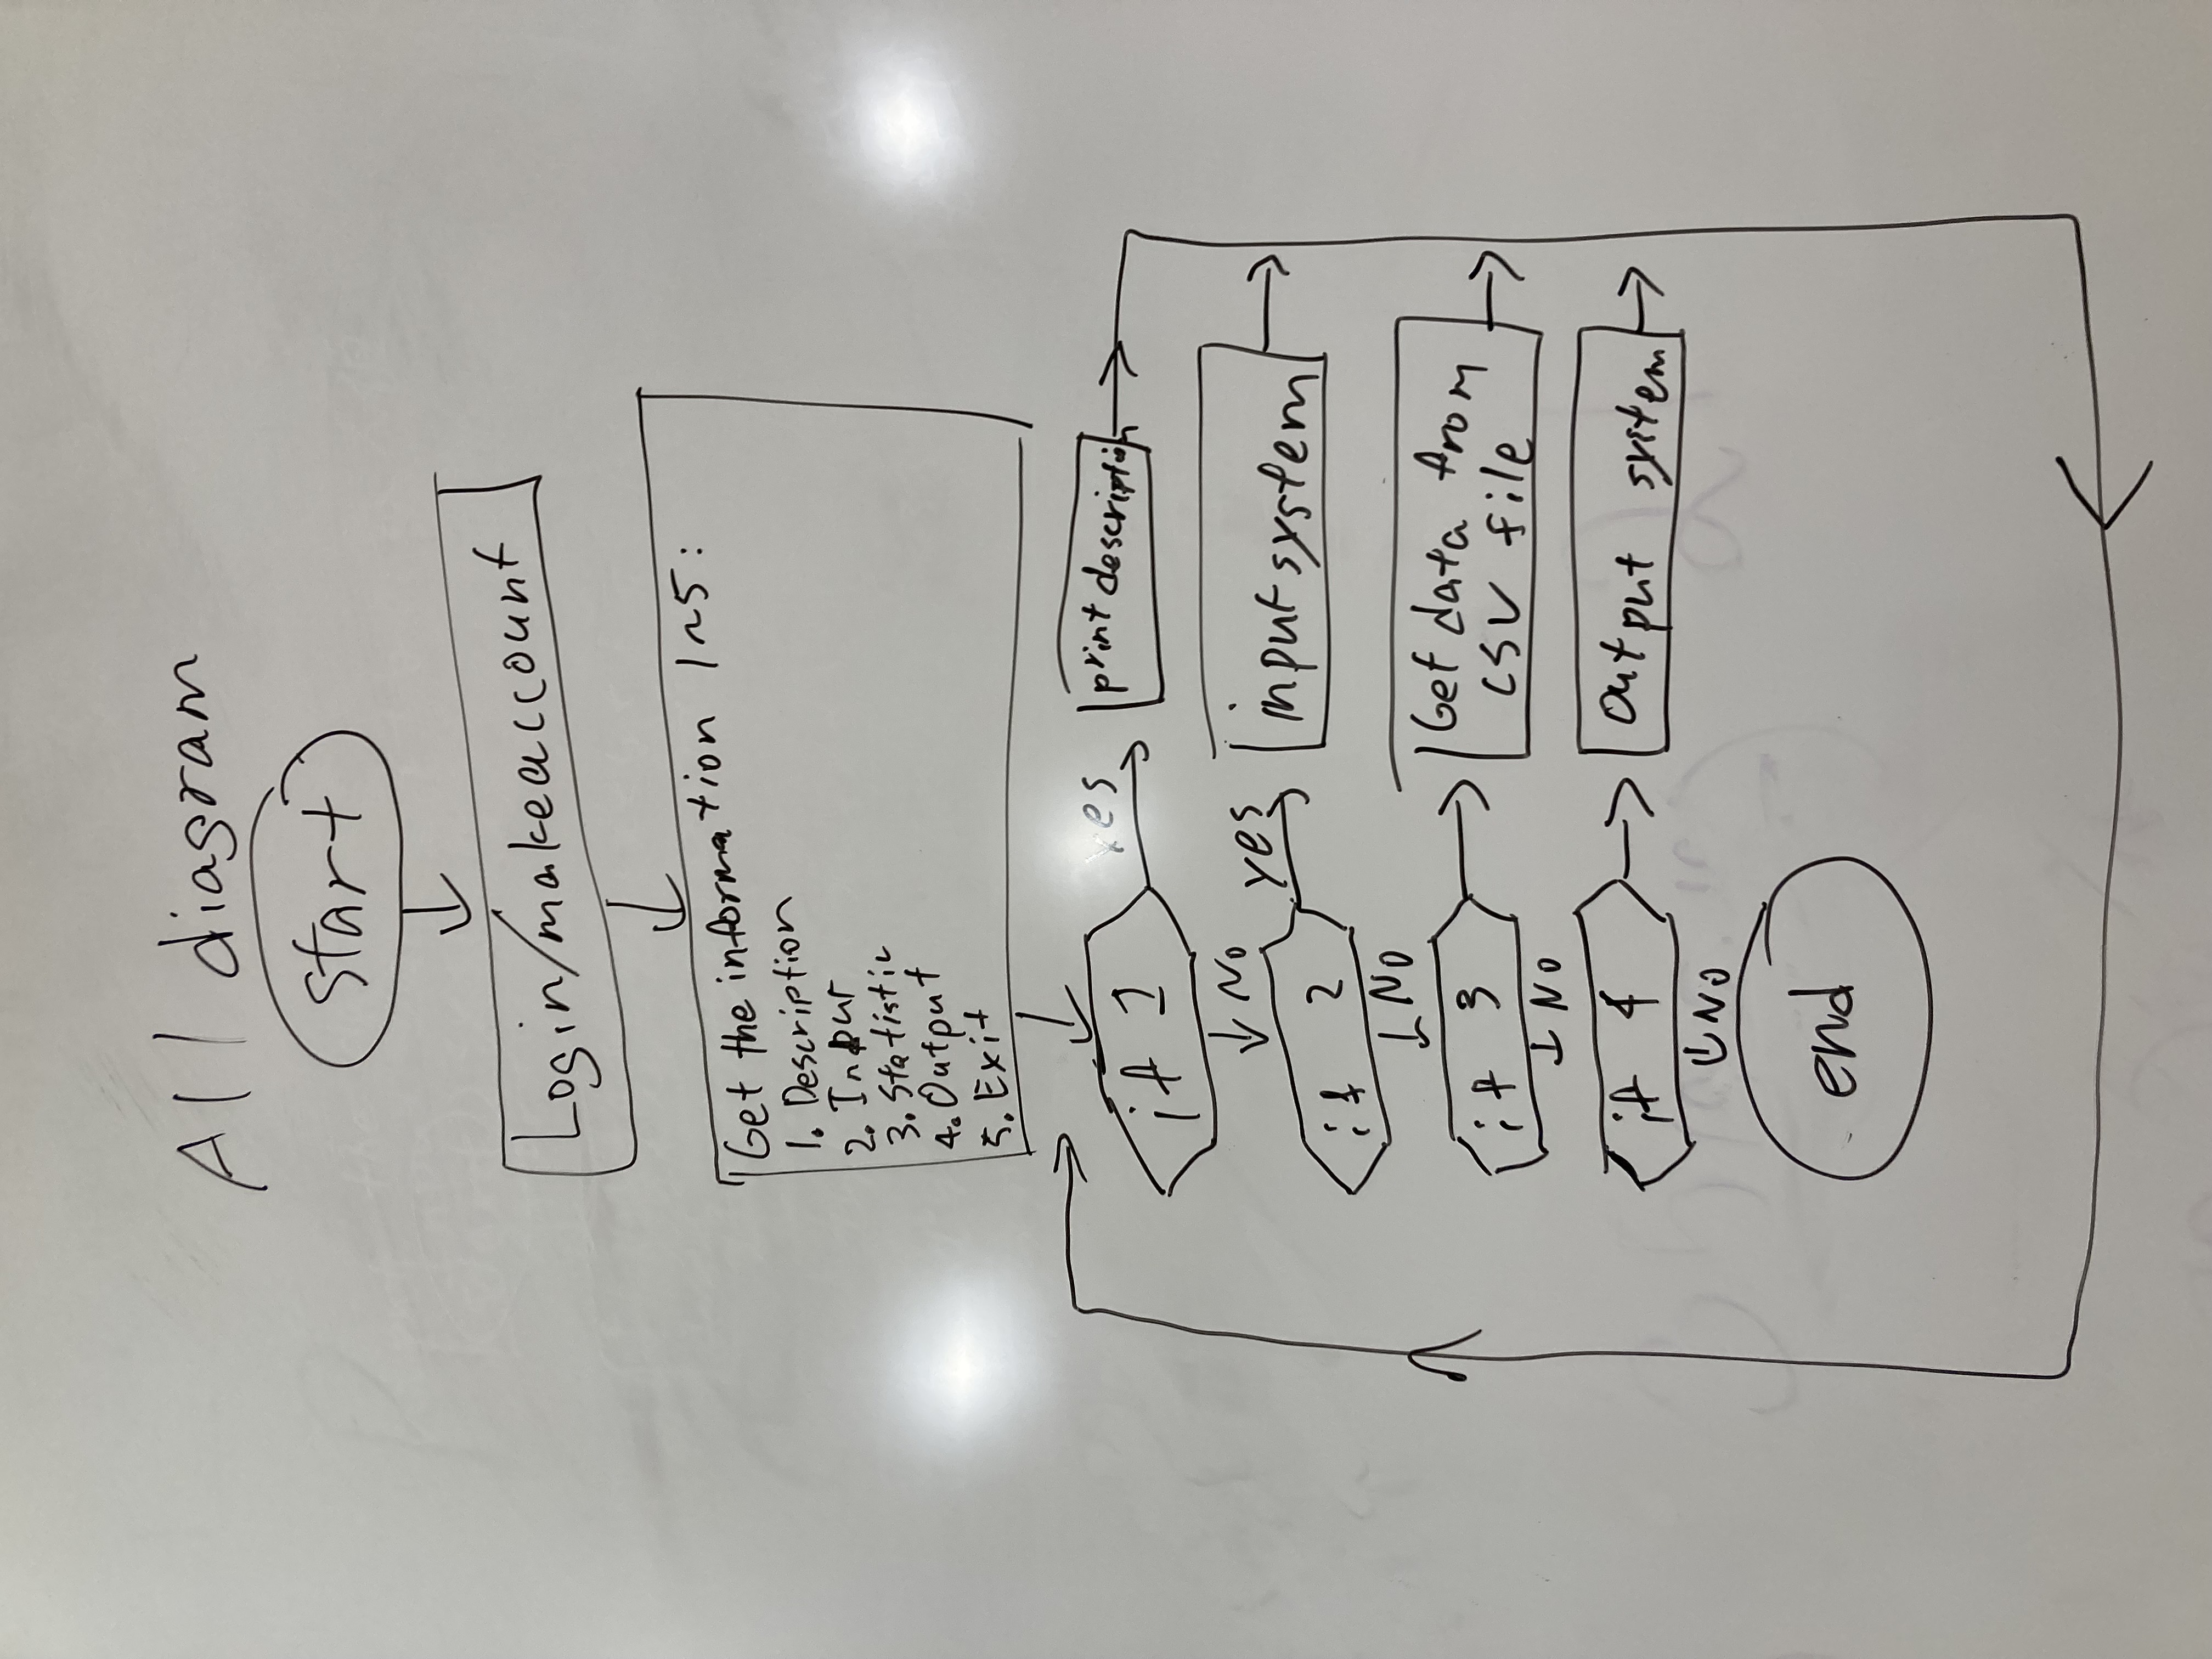 All diagram
start
Login/makeaccount
Get the information 1~5:
1. Description
2. Input
3. Statistic
4. Output
5. Exit
if 1
yes
print description
No
if 2
yes
input system
No
if 3
Get data from
CSV file
No
if 4
output system
No
end